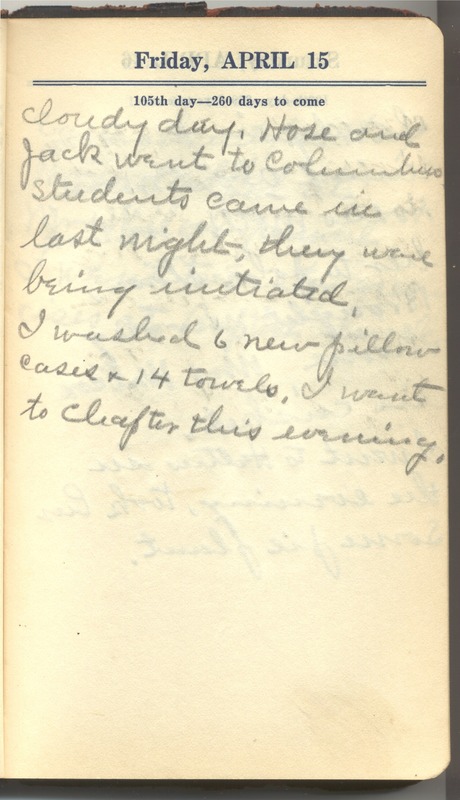 Friday, APRIL 15
105th day—260 days to come
cloudy day. Hose and
Jack went to Columbus
Students came in
last night, they were
being initiated.
I washed 6 new pillow
cases & 14 towels. I want
to Chapter this evening.